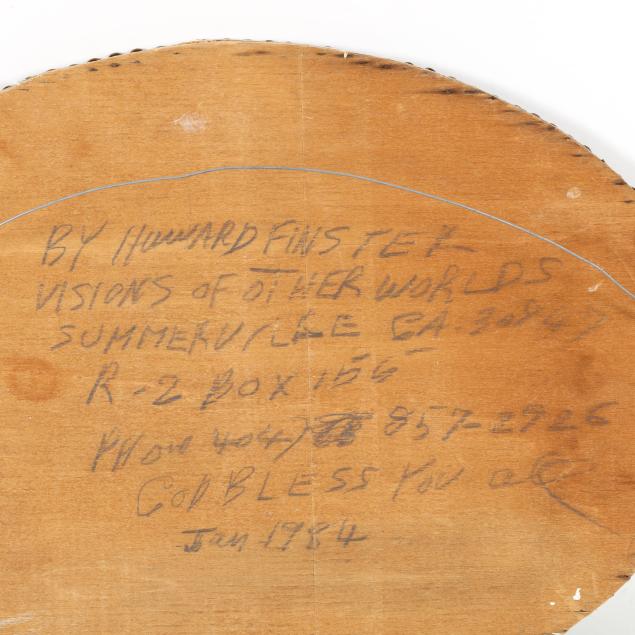 BY HOWARD FINSTER
VISIONS OF OTHER WORLDS
SUMMERVILLE GA. 30747
R-2 BOX 155
PHON 404) 857-2926
GOD BLESS YOU all
Jan 1984